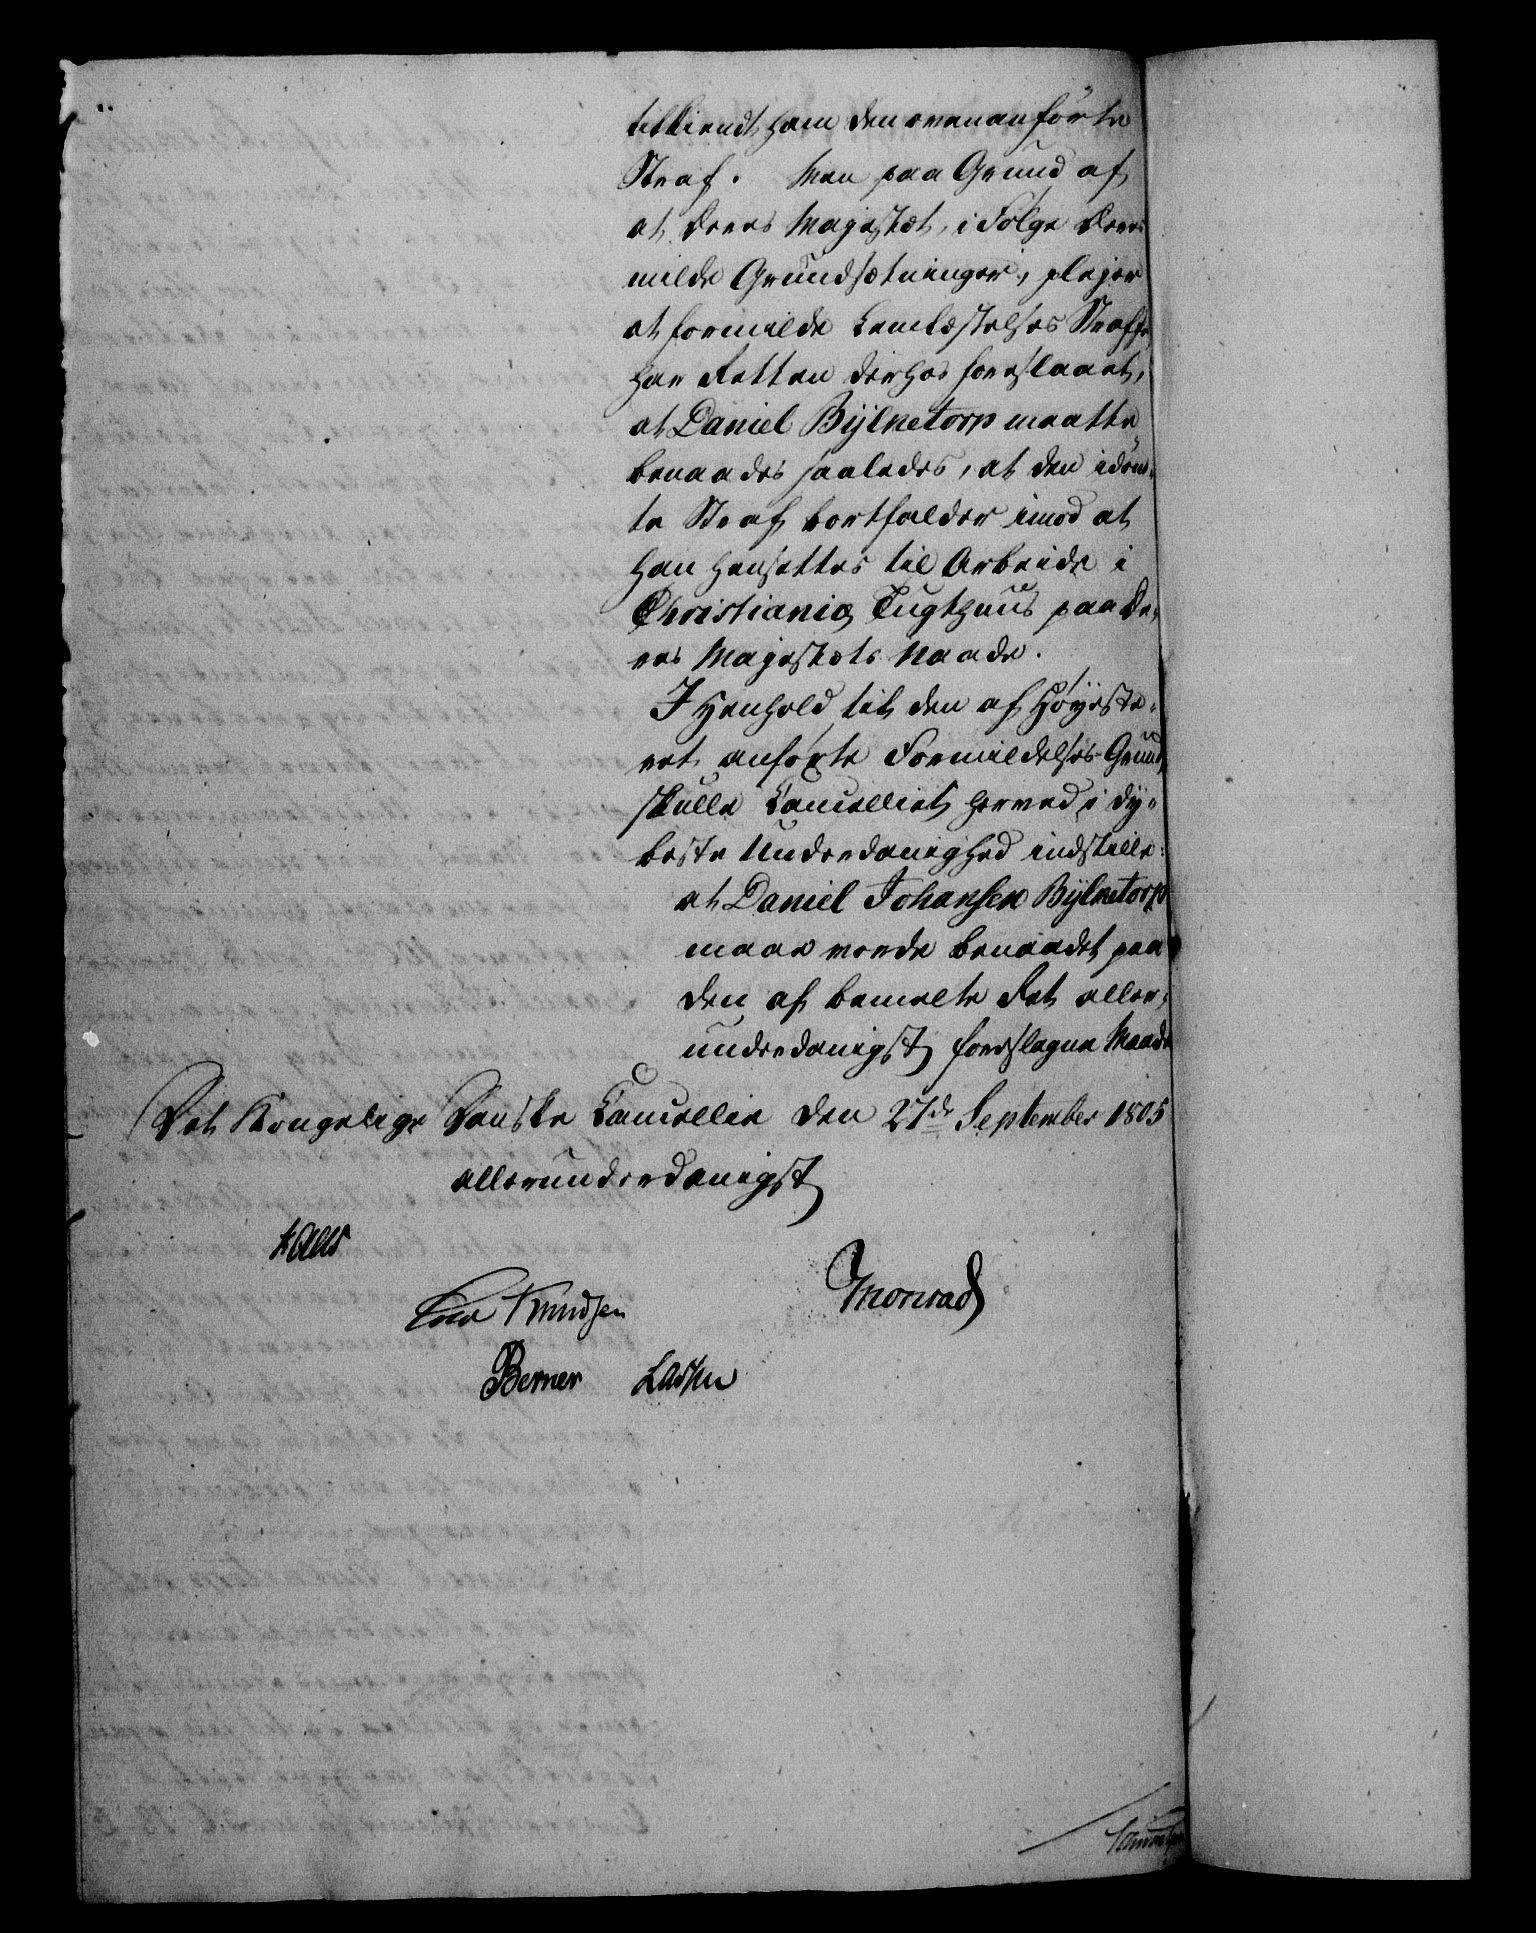 tilkiendt ham den ovenanförte
Straf. Men paa Grund af
at Deres Majestæt, i Følge Deres
milde Grundsætninger, plejer
at formilde Lemlæstelses Straffe
har Retten derhos foreslaaet,
at Daniel Bÿlnetorp maatte
benaades saaledes, at den idöm-
te Straf bortfalder imod at
han hensættes til Arbeide i
Christianiæ Tugthuus paa De-
res Majestæts Naade.
I Henhold til den af Höÿeste-
ret anførte Formildelses-Grund,
skulle Cancelliet herved i dÿ-
beste Underdanighed indstille:
at Daniel Johansen Bÿlnetorp
maae vorde benaadet paa
den af bemelte Ret aller-
underdanigst foreslagne Maade
Det Kongelige Danske Cancellie den 27de September 1805
allerunderdanigst
Kaas
Knudsen
Monrad
Berner Lassen